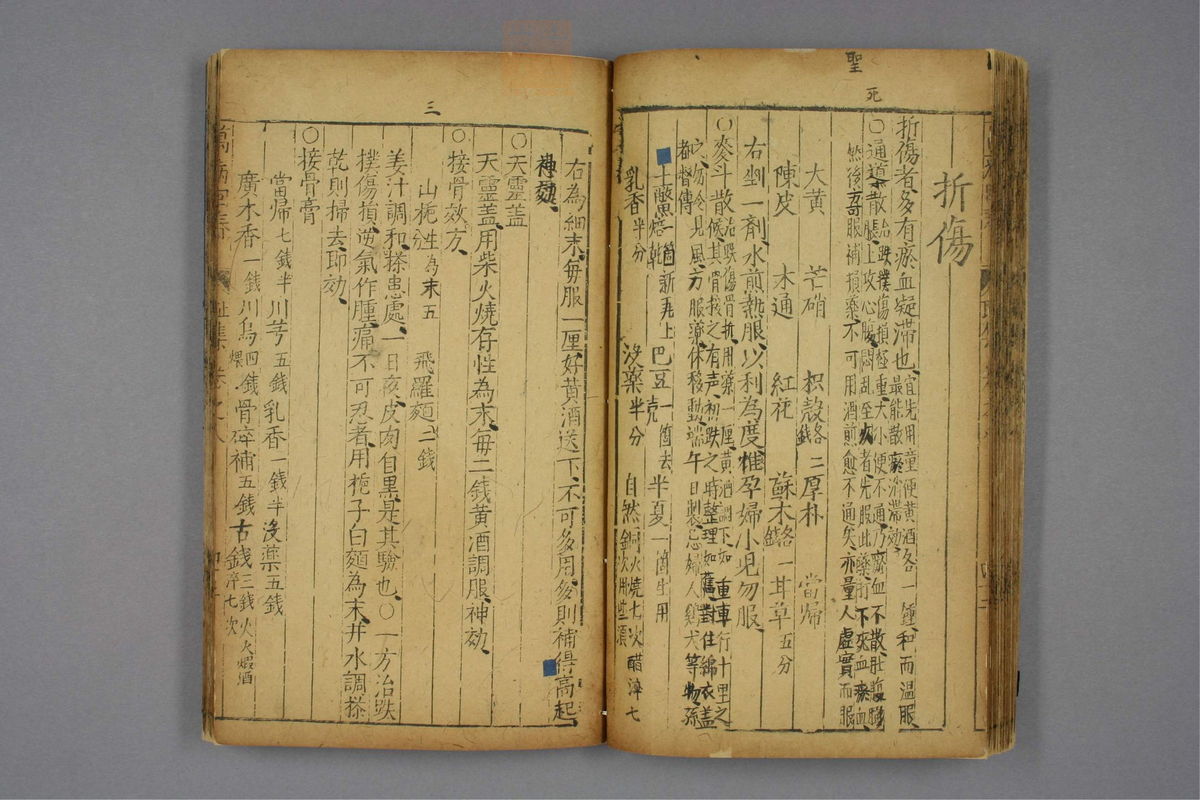 聖
死
折傷
折傷者多有瘀血凝滯也宜先用童便黄酒各一鍾和而温服
最能散瘀消滯効
〇通導散治跌撲傷損極重大小便不通乃瘀血不散肚腹膨
脹上攻心腹悶乱至死者先服此藥打下死血瘀血
然後可服補損藥不可用酒煎愈不通矣亦量人虚實而服
大黄 芒硝 枳殼各二錢 厚朴 當歸
陳皮 木通 紅花 蘇木各一錢 甘草五分
右剉一劑水煎熱服以利為度惟孕婦小児勿服
〇麥斗散治跌傷骨折用藥一厘黄酒調下如重車行十里之
候其骨接之有声初跌之時整理如舊對住綿衣盖
之勿令見風方服藥休移動端午日製忌婦人鷄犬等物孫
都督傳
土鱉一箇新瓦上焙乾 巴豆一箇去壳 半夏一箇生用
乳香半分 没藥半分 自然銅火燒七次醋淬七次用些須
三
右為細末毎服一厘好黄酒送下不可多用多則補得高起
神効
〇天靈盖
天靈盖用柴火燒存性為末毎二錢黄酒調服神効
〇接骨效方
山梔生為末五分 飛羅麵二錢
姜汁調和搽患處一日夜皮肉自黒是其驗也〇一方治跌
撲傷損逆氣作腫痛不可忍者用梔子白麵為末井水調搽
乾則掃去即効
〇接骨膏
當帰七錢半川芎五錢乳香一錢半没藥五錢
廣木香一錢川烏四錢煨骨碎補五錢古錢三錢火煅酒淬七次